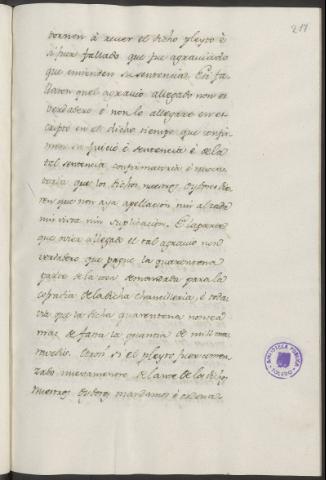 217
tornen à rever el dicho pleyto è
si fuer fallado que fue agraviado
que emienden su sentencia. È si fa-
llaren quel agravio allegado non es
verdadero è non lo allegare en es-
cripto en el dicho tiempo que confir-
men su juicio è sentencia è de la
tal sentencia confirmatoria è revoca-
toria que los dichos nuestros Oydores die-
ren que non aya apellacion nin alzada
nin vista nin suplicacion. È la parte
que ovier allegado el tal agravio non
verdadero que pague la quarentena
parte de la cosa demandada para la
cofradia de la dicha Chancilleria, è toda
via que la dicha quarentena non sea
mas de fasta la quantia de mill ma-
ravedis. Otrosi si el pleyto fuer comen-
zado nuevamente delante de los dichos
nuestros Oydores mandamos è ordena-
BIBLIOTECA PÚBLICA
TOLEDO